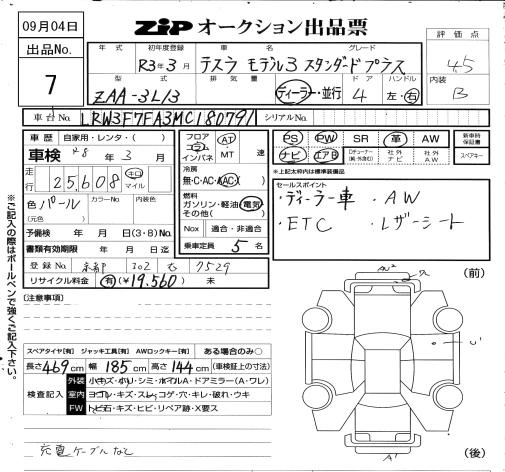 09月04日
ZIP オークション出品票
出品No.
7
年式 初年度登録 車名 グレード
R3年3月 テスラ モデル3 スタンダードプラス
型式 排気量 ドア ハンドル
ZAA-3L13 ディーラー・並行 4 左・右
評価点
4.5
内装
B
車台No. LRW3F7FA3MC180791 シリアルNo.
車歴 自家用・レンタ・( )
車検 R8年3月
走行 25,608 キロ マイル
色 パール カラーNo. 内装色
(元色)
予備検 年 月 日(3・8)No.
書類有効期限 年 月 日迄
登録No. 京都 302 7529
リサイクル料金 有(¥19,560) 未
フロア コラム インパネ AT MT 速
冷房
無・C・AC・AAC
燃料
ガソリン・軽油 電気
その他( )
Nox 適合・非適合
乗車定員 5名
PS PW SR 革 AW
ナビ エアB Dチューナー 社外ナビ 社外AW
新車時保証書
スペアキー
*上記太枠内は標準装備品
セールスポイント
・ディーラー車 ・AW
・ETC ・レザーシート
※ご記入の際はボールペンで強くご記入下さい。
(注意事項)
スペアタイヤ[有] ジャッキ工具[有] AWロックキー[有] ある場合のみ○
長さ469cm 幅185cm 高さ144cm (車検証上の寸法)
検査記入
外装 小キズ・小U・シミ・ホイルA・ドアミラー(A・ワレ)
室内 ヨゴレ・キズ・スレ・コゲ・穴・キレ・破れ・ウキ
FW トビ石・キズ・ヒビ・リペア跡・X要ス
充電ケーブルなし
(前)
(後)
A1